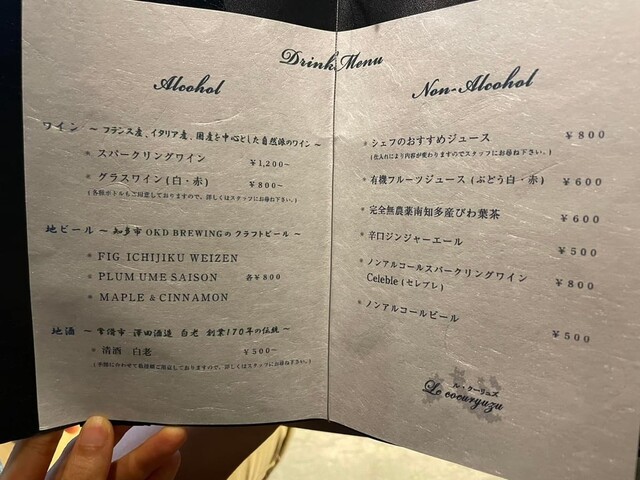 Drink Menu
Alcohol
ワイン ～ フランス産、イタリア産、国産を中心とした自然派のワイン ～
* スパークリングワイン ￥1,200～
* グラスワイン (白・赤) ￥800～
(各種ボトルもご用意しておりますので、詳しくはスタッフにお尋ね下さい。)
地ビール ～ 知多市 OKD BREWINGのクラフトビール ～
* FIG ICHIJIKU WEIZEN
* PLUM UME SAISON 各￥800
* MAPLE & CINNAMON
地酒 ～ 常滑市 澤田酒造 白老 創業170年の伝統 ～
* 清酒 白老 ￥500～
(季節にあわせて数種類ご用意しておりますので、詳しくはスタッフにお尋ね下さい。)
Non-Alcohol
* シェフのおすすめジュース ￥800
(仕入れにより内容が変わりますのでスタッフにお尋ね下さい。)
* 有機フルーツジュース (ぶどう白・赤) ￥600
* 完全無農薬南知多産びわ葉茶 ￥600
* 辛口ジンジャーエール ￥500
* ノンアルコールスパークリングワイン
Celeble (セレブレ) ￥800
* ノンアルコールビール ￥500
ル・クーリュズ
Le cocuryuzu